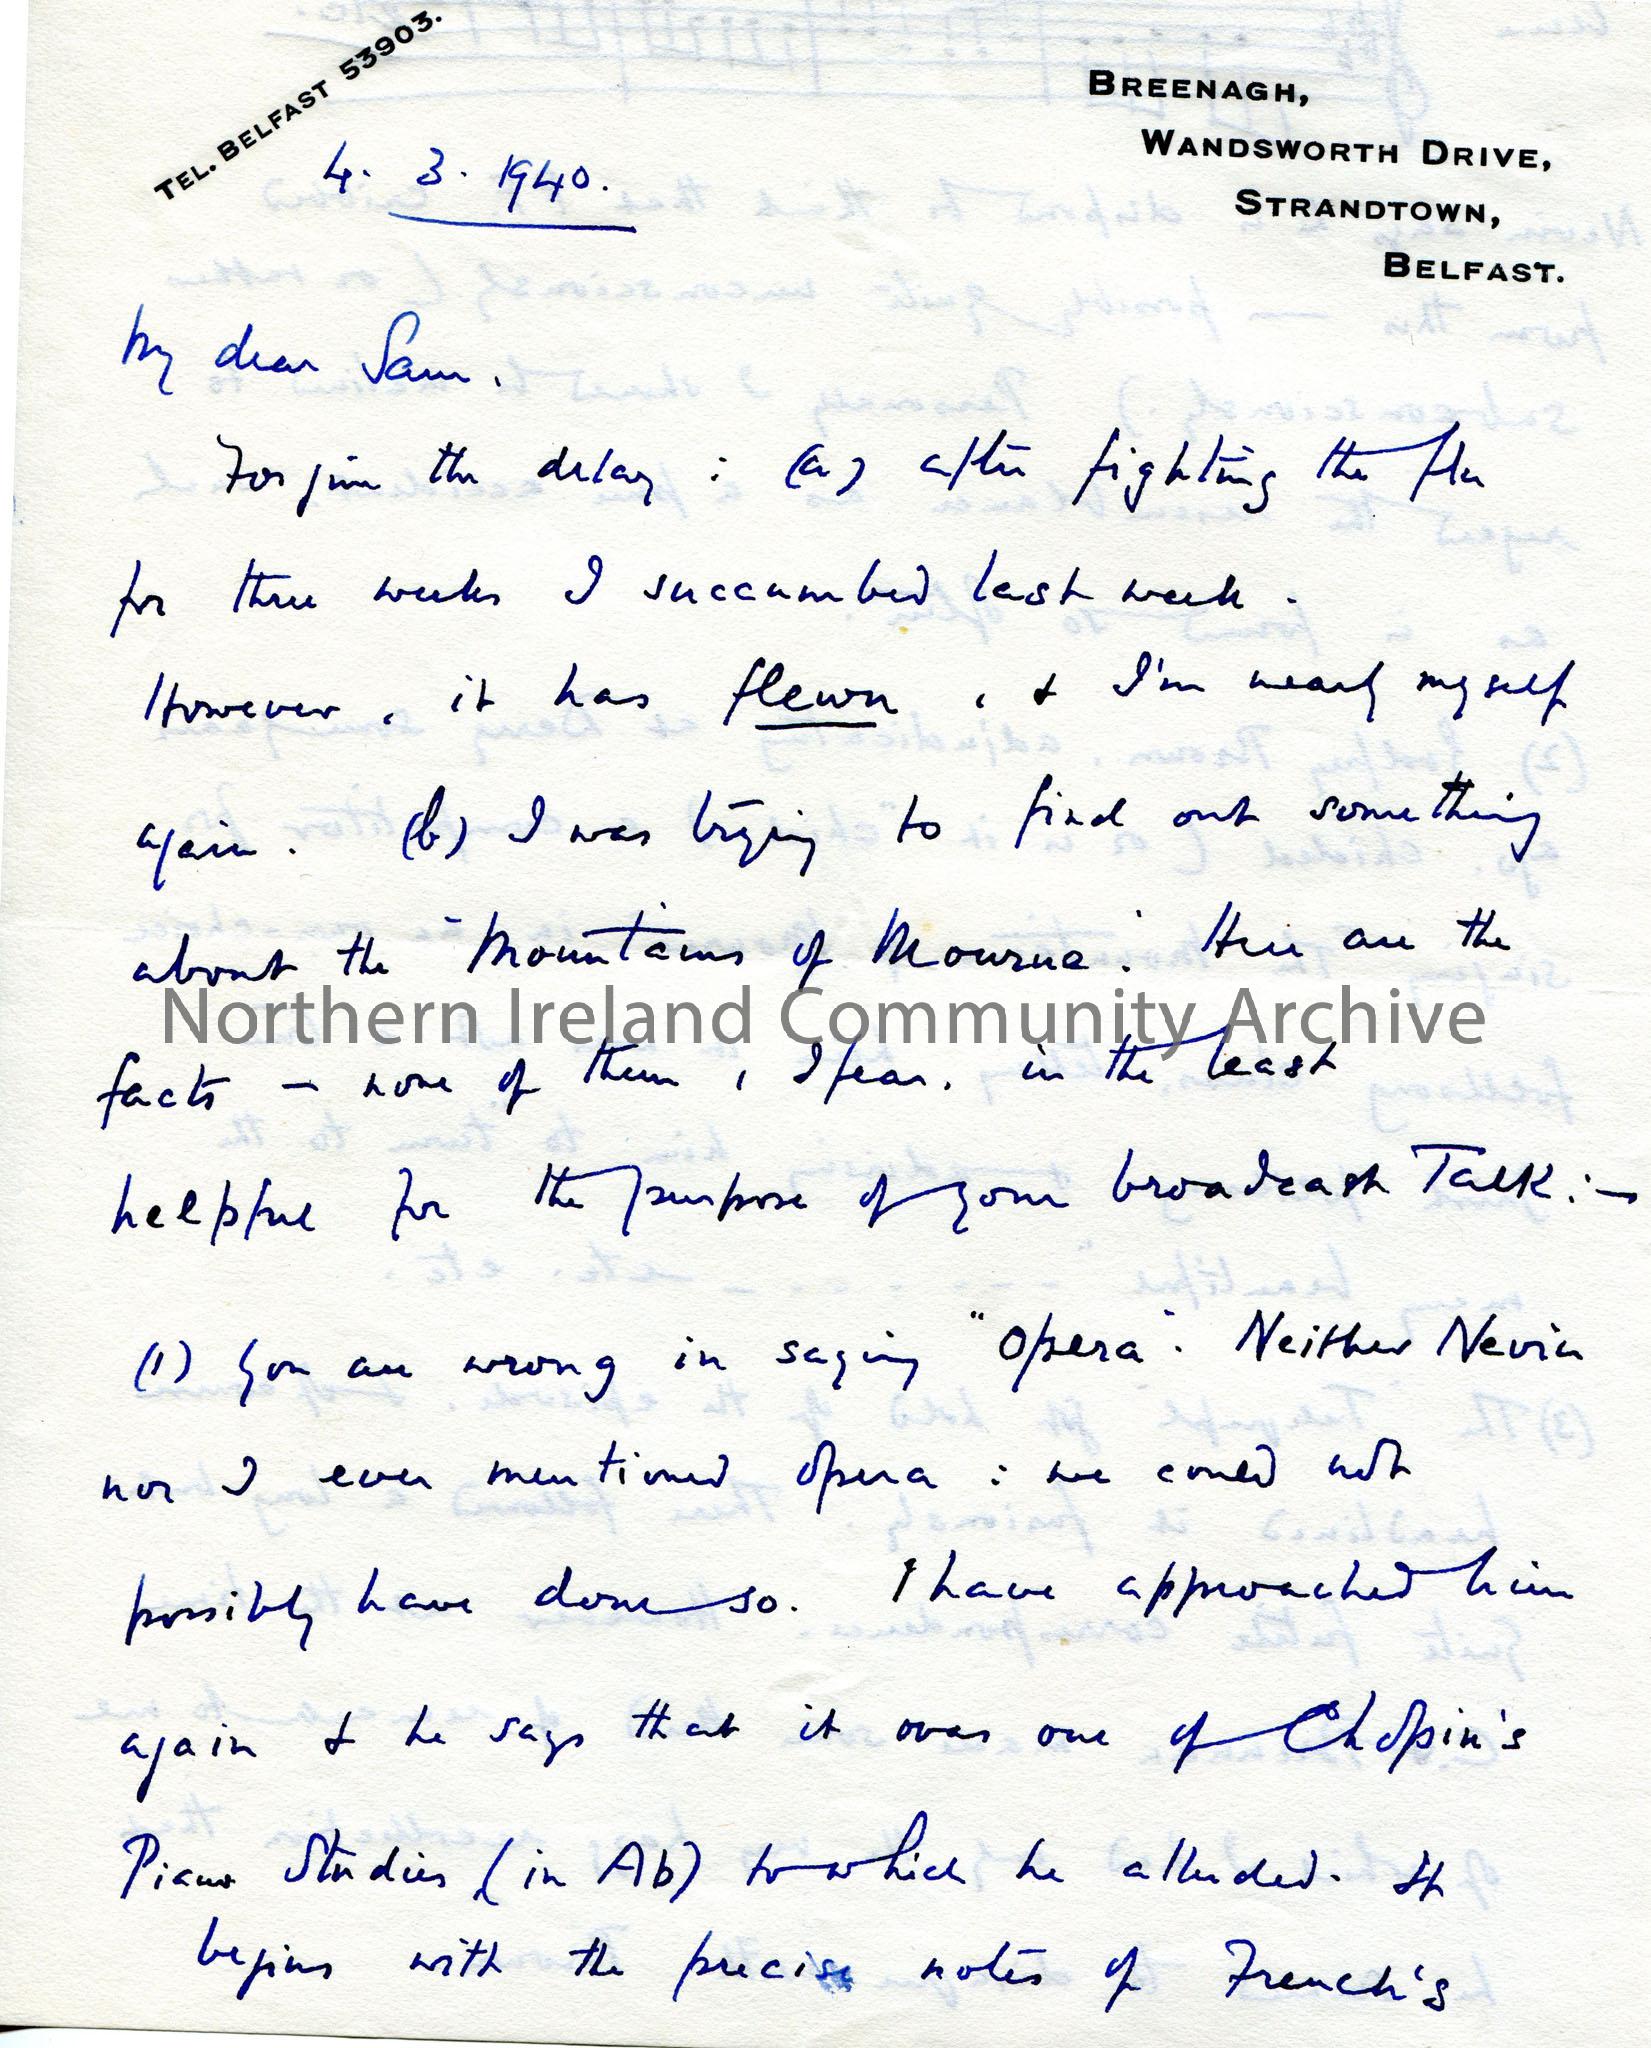 TEL. BELFAST 53903.
BREENAGH,
WANDSWORTH DRIVE,
STRANDTOWN,
BELFAST.
4. 3. 1940.
My dear Sam,
Forgive the delay : (a) after fighting the flu
for three weeks I succumbed last week.
However, it has flewn, & I'm nearly myself
again. (b) I was trying to find out something
about the "Mountains of Mourne". Here are the
Northern Ireland Community Archive
facts – none of them, I fear, in the least
helpful for the purpose of your broadcast Talk :–
(1) You are wrong in saying "opera". Neither Nevin
nor I ever mentioned opera : we could not
possibly have done so. I have approached him
again & he says that it was one of Chopin's
Piano Studies (in Ab) to which he alluded. It
begins with the precise notes of French's